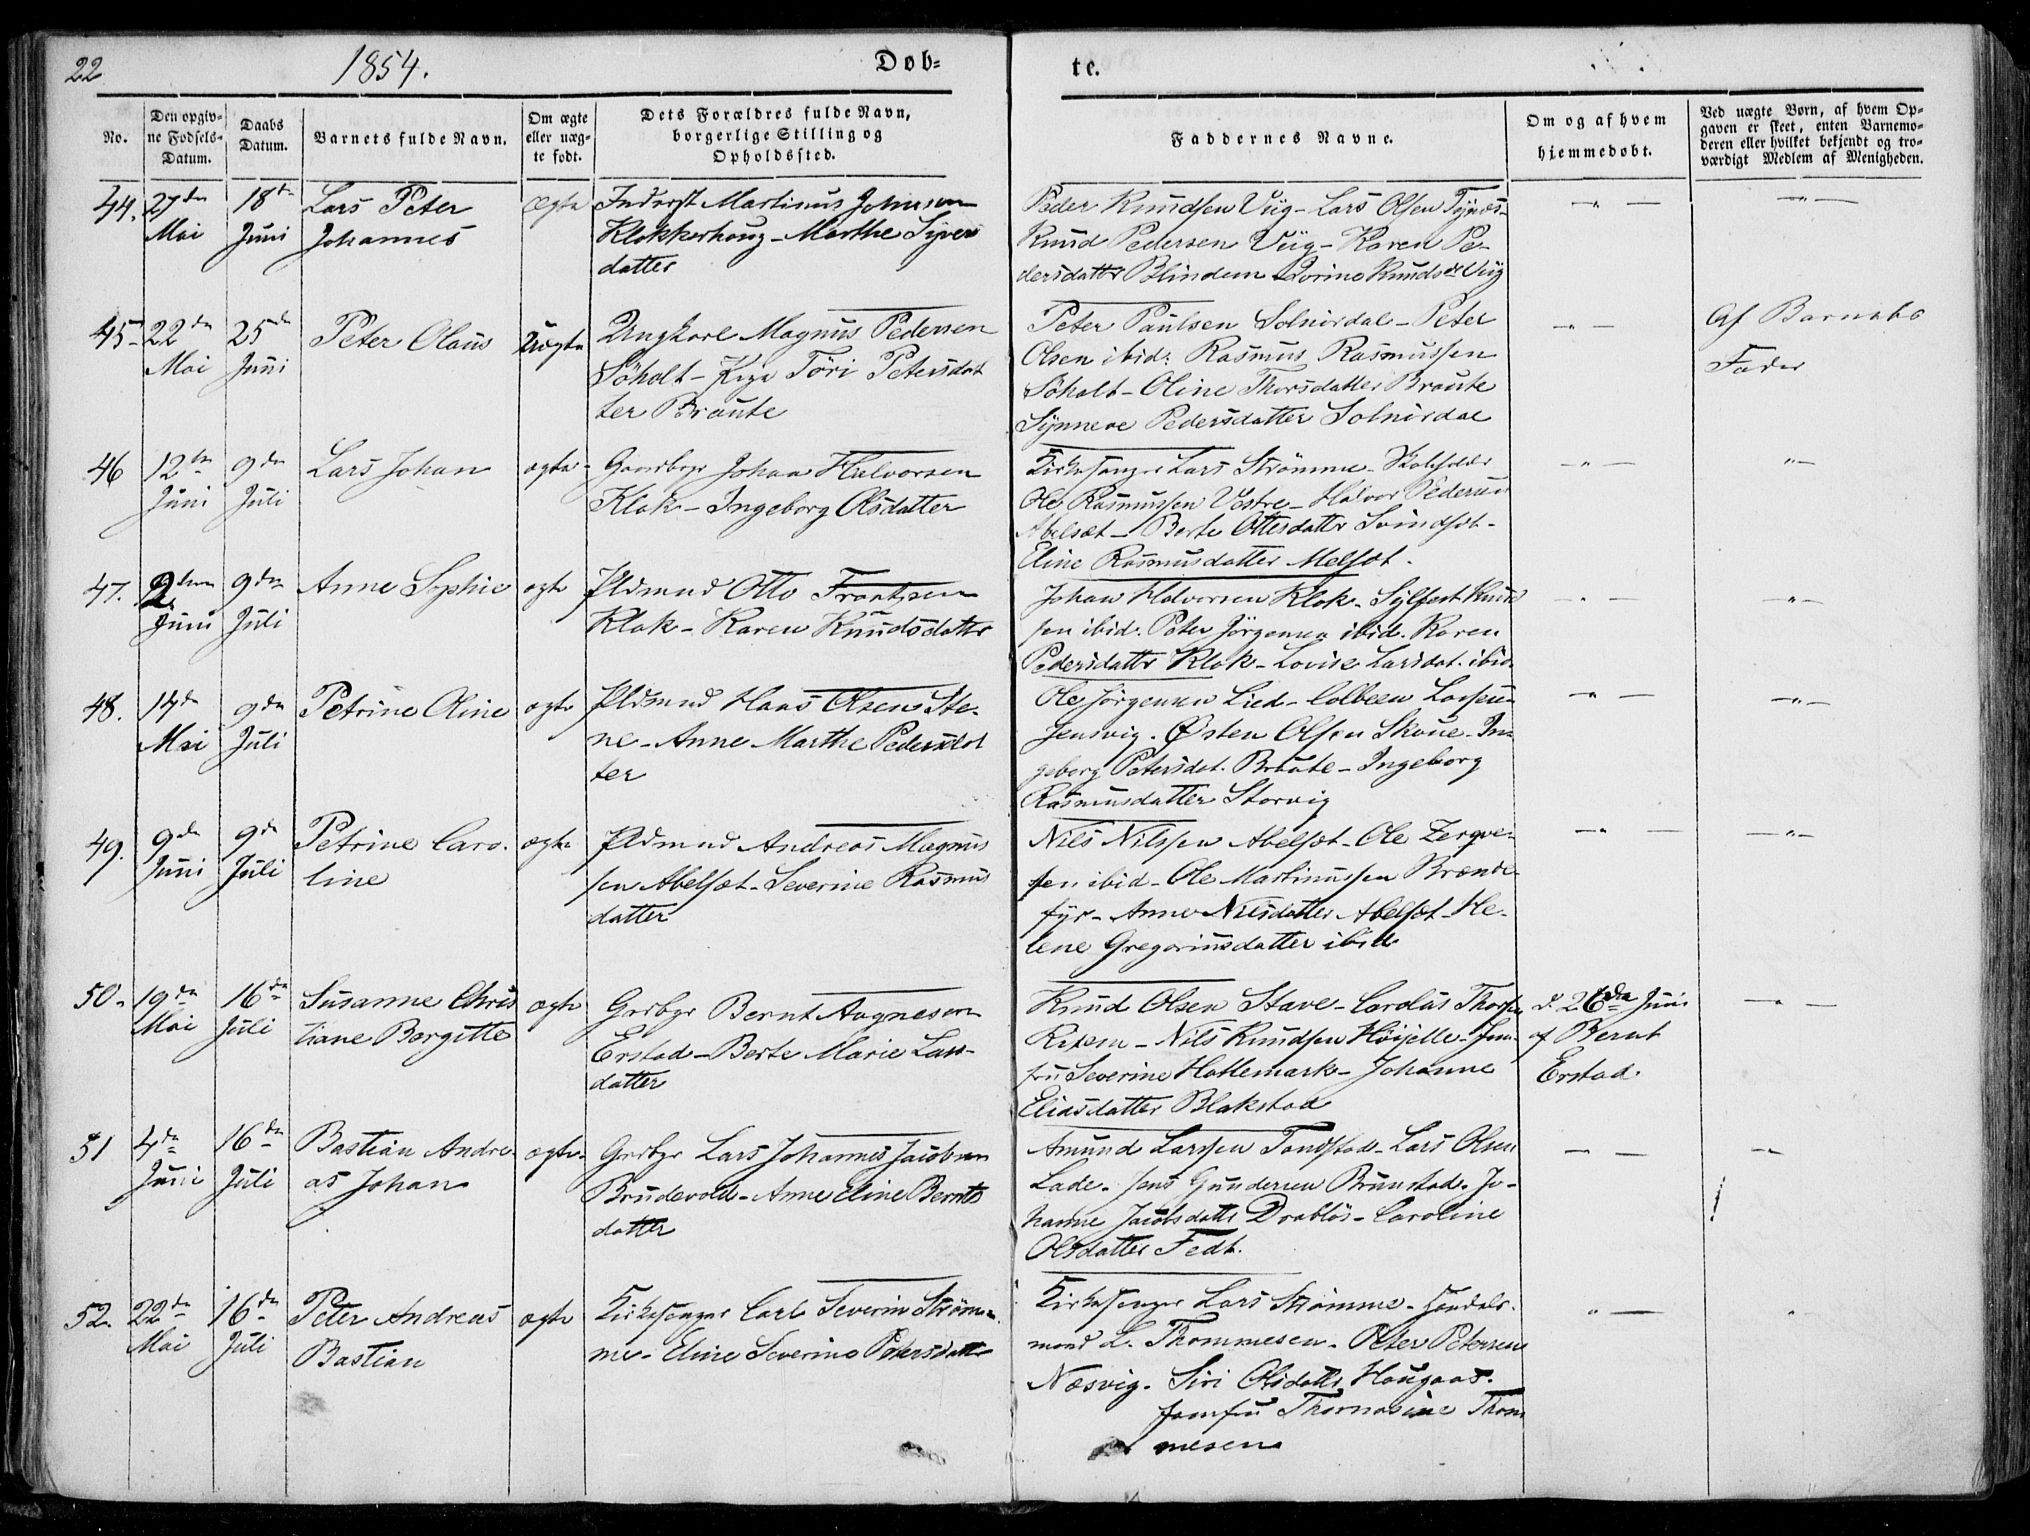 22
1854.
Døb-
te.
No.
Den opgiv-
ne Fødsels-
Datum.
Daabs
Datum.
Barnets fulde Navn.
Om ægte
eller uæg-
te født.
Dets Forældres fulde Navn,
borgerlige Stilling og
Opholdssted.
Faddernes Navne.
Om og af hvem
hjemmedøbt.
Ved uægte Børn, af hvem Op-
gaven er skeet, enten Barnemo-
deren eller hvilket bekjendt og tro-
værdigt Medlem af Menigheden.
44. 27de 18de Lars Peter ægte Martinus Johnsen
Mai Juni Johannes Klokkerhoug - Marthe Syvers
datter
Peder Knudsen Viig - Lars Olsen Tynæs -
Knud Pedersen Viig - Karen Pe-
dersdatter Blindem - Dorine Knudsdr Viig
45 - 22de 25de Peter Olaus Uægte Ungkarl Magnus Pedersen
Mai Juni Søholt - Pige Töri Petersdat
ter Braute
Peter Paulsen Solnørdal - Peter
Olsen ibid: Rasmus Rasmussen
Søholt - Oline Thorsdatter Braute
Synneve Pedersdatter Solnørdal
Af Barnets
Fader
46 12te 9de Lars Johan ægte Gaardbgr Johan Halvorsen
Juni Juli Klok - Ingeborg Olsdatter
Kirkesanger Lars Strömme - Skoleholder
Ole Rasmussen Vestre - Halvor Pedersen
Abelsæt - Berte Ottesdatter Svindset -
Eline Rasmusdatter Melsæt.
47. 2den 9de Anne Sophie ægte Pldsmnd Otto Frantzsen
Juni Juli Klok - Karen Knudsdatter
Johan Halvorsen Klok - Sylfest Knud
sen ibid. Peter Jörgensen ibid. Karen
Pedersdatter Klok - Lovise Larsdat. ibid.
48. 14de 9de Petrine Oline ægte Pldsmnd Hans Olsen Ste-
Mai Juli ne - Anne Marthe Pedersdat
ter
Ole Jörgensen Lied - Colbeen Larsen
Jensvig - Østen Olsen Skoue - In-
geborg Petersdat. Braute - Ingeborg
Rasmusdatter Storvig
49. 9de 9de Petrine Caro- ægte Pldsmnd Andreas Magnus
Juni Juli line sen Abelsæt - Severine Rasmus
datter
Nils Nilssen Abelsæt - Ole
sen ibid - Ole Martinussen Brænde-
fyr - Anne Nilsdatter Abelsæt - He-
lene Gregoriusdatter ibid
50. 19de 16de Susanne Chris ægte Grdbgr Bernt Aagnesen
Mai Juli tiane Borgitte Erstad - Berte Marie Lars-
datter
Knud Olsen Stave - Carolus Thorsen
Nils Knudsen Høijelle - Jom-
fru Severine Hattemark - Johanne
Eliasdatter Blakstad
d. 26de Juni
af Bernt
Erstad.
51 4de 16de Bastian Andre- ægte Grdbgr Lars Johannes Jacobsen
Juni Juli as Johan Brudevold - Anne Eline Bernts
datter
Amund Larssen Tandstad - Lars Olsen
Lade. Jens Gundersen Brunstad. Jo-
hanne Jacobsdatter Drabløs - Caroline
Olsdatter Fedt.
52. 22de 16de Peter Andreas ægte Kirkesanger Carl Severin Ström-
Mai Juli Bastian me - Eline Severine Petersdatter
Kirkesanger Lars Strömme - Handels-
mand L. Thommesen - Peter Petersen
Næsvig. Siri Olsdatter Haugaas.
Jomfru Thomasine Thom
mesen